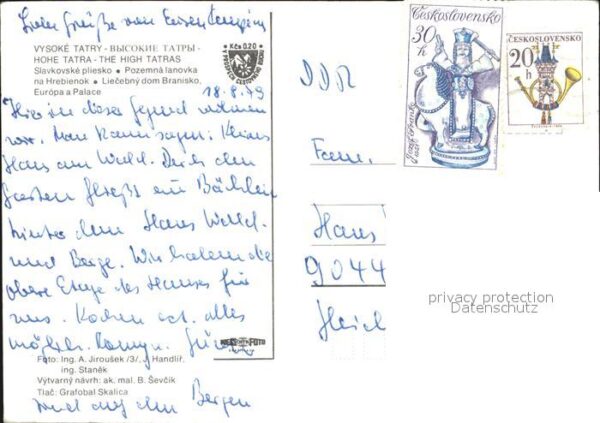 VYSOKÉ TATRY - ВЫСОКИЕ ТАТРЫ -
HOHE TATRA - THE HIGH TATRAS
Slavkovské pliesko ● Pozemná lanovka
na Hrebienok ● Liečebný dom Branisko,
Európa a Palace
Kčs 0,20
18.8.79
Hier in dieser Gegend wohnen
wir. Man kann sagen: Kleines
Haus am Wald. Durch den
Garten fließt ein Bächlein
hinter dem Haus Wald
und Berge. Wir haben die
obere Etage des Hauses für
uns. Kochen ect. alles
möglich.
Foto: Ing. A. Jiroušek /3/, J. Handlíř,
ing. Staněk
Výtvarný návrh: ak. mal. B. Ševčík
Tlač: Grafobal Skalica
und auf den Bergen
Československo
30
h
ČESKOSLOVENSKO
20
h
DDR
Fam.
Hans
9044
privacy protection
Datenschutz